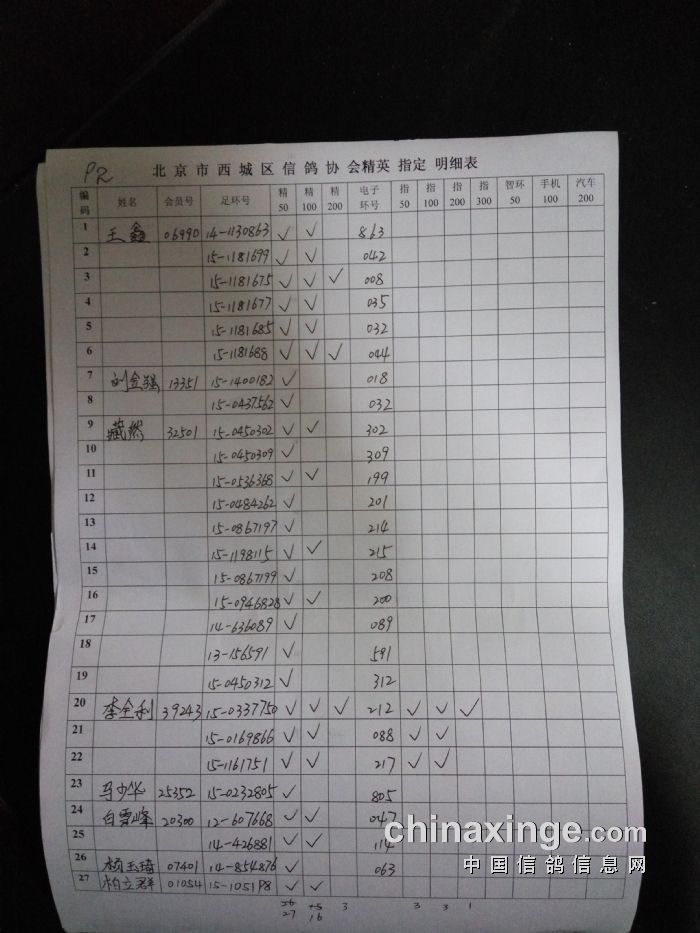 P2
北京市西城区信鸽协会精英 指定 明细表
编码 姓名 会员号 足环号 精50 精100 精200 电子环号 指50 指100 指200 指300 智环50 手机100 汽车200
1 王鑫 06990 14-1130863 ✓ ✓ 863
2 15-1181699 ✓ ✓ 042
3 15-1181675 ✓ ✓ ✓ 008
4 15-1181677 ✓ ✓ 035
5 15-1181685 ✓ ✓ 032
6 15-1181688 ✓ ✓ ✓ 044
7 刘金强 13351 15-1400182 ✓ 018
8 15-0437562 ✓ 032
9 臧然 32501 15-0450302 ✓ ✓ 302
10 15-0450309 ✓ 309
11 15-0536368 ✓ ✓ 199
12 15-0484262 ✓ 201
13 15-0867197 ✓ 214
14 15-1198115 ✓ ✓ 215
15 15-0867199 ✓ 208
16 15-0946828 ✓ ✓ 200
17 14-636089 ✓ 089
18 13-156591 ✓ 591
19 15-0450312 ✓ 312
20 李全利 39243 15-0337750 ✓ ✓ ✓ 212 ✓ ✓ ✓
21 15-0169866 ✓ ✓ 088 ✓ ✓
22 15-1161751 ✓ ✓ 217 ✓ ✓
23 马少华 25352 15-0232805 ✓ 805
24 白雪峰 20300 12-607668 ✓ ✓ 047
25 14-426881 ✓ ✓ 114
26 杨玉琦 07401 14-854876 ✓ 063
27 柏立群 01054 15-105198 ✓ ✓
3 3 3 1
27 16
chinaxinge.com
中国信鸽信息网